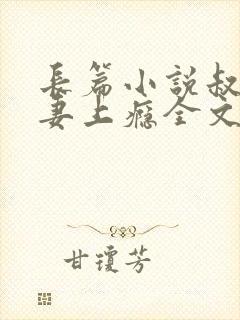 長篇小説叔
妻上癮全文
甘瓊芳